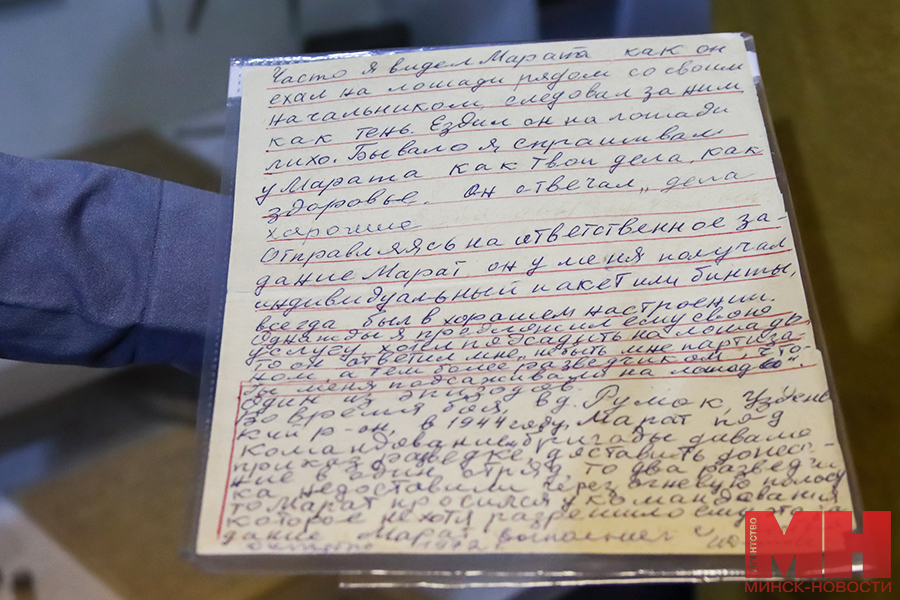 Часто я видел Марата как он
ехал на лошади рядом со своим
начальником, следовал за ним
как тень. Ездил он на лошади
лихо. Бывало я спрашивал
у Марата как твои дела, как
здоровье. Он отвечал „дела
хорошие
Отправляясь на ответственное за-
дание Марат он у меня получал
индивидуальный пакет или бинты,
всегда был в хорошем настроении.
Однажды я предложил ему свою
услугу, хотел подсадить на лошадь,
то он ответил мне, не быть мне партиза
ном а тем более разведчиком, что
бы меня подсаживали на лошадь".
Один из эпизодов.
Во время боя, в д. Румок Узденс
кий р-он, в 1944 году, Марат под
командование бригады давало
приказ разведке доставить донесе-
ние в один отряд то два разведчи
ка недоставили через огневую полосу
то Марат просился у командования
которое не хотя разрешило ему это за
дание Марат выполнил
АГЕНТСТВО
МН
МИНСК-НОВОСТИ